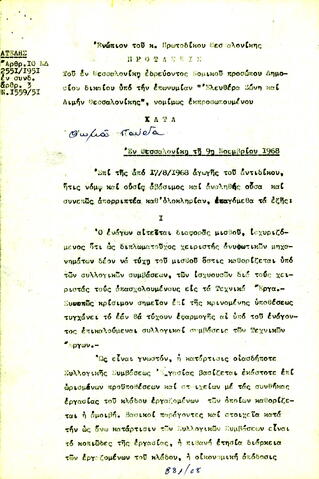 Ἐνώπιον τοῦ κ. Πρωτοδίκου Θεσσαλονίκης
ΠΡΟΤΑΣΕΙΣ
ΑΤΕΛΗΣ
Ἄρθρ. 10 ΝΔ
2551/1951
ἐν συνδ.
ἄρθρ. 3
Ν.1559/51
Τοῦ ἐν Θεσσαλονίκῃ ἑδρεύοντος Νομικοῦ προσώπου Δημο-
σίου δικαίου ὑπό τήν ἐπωνυμίαν "Ἐλευθέρα Ζώνη καί
Λιμήν Θεσσαλονίκης", νομίμως ἐκπροσωπουμένου
ΚΑΤΑ
Ἐν Θεσσαλονίκῃ τῇ 9ῃ Νοεμβρίου 1968
Ἐπί τῆς ἀπό 17/8/1968 ἀγωγῆς τοῦ ἀντιδίκου,
ἥτις νόμῳ καί οὐσίᾳ ἀβάσιμος καί ἀναληθής οὖσα καί
συνεπῶς ἀπορριπτέα καθ'ὁλοκληρίαν, ἐπαγόμεθα τά ἑξῆς:
Ι
Ὁ ἐνάγων αἰτεῖται διαφοράς μισθοῦ, ἰσχυριζό-
μενος ὅτι ὡς διπλωματοῦχος χειριστής ἀνυψωτικῶν μηχα-
νημάτων δέον νά τύχῃ τοῦ μισθοῦ ὅστις καθορίζεται ὑπό
τῶν συλλογικῶν συμβάσεων, τῶν ἰσχυουσῶν διά τούς χει-
ριστάς τούς ἀπασχολουμένους εἰς τά Τεχνικά Ἔργα.-
Συνεπῶς κρίσιμον σημεῖον ἐπί τῆς κρινομένης ὑποθέσεως
τυγχάνει τό ἐάν θά τύχουν ἐφαρμογῆς αἱ ὑπό τοῦ ἐνάγον-
τος ἐπικαλούμεναι συλλογικαί συμβάσεις τῶν Τεχνικῶν
Ἔργων.-
Ὡς εἶναι γνωστόν, ἡ κατάρτισις οἱασδήποτε
Συλλογικῆς Συμβάσεως Ἐργασίας βασίζεται ἑκάστοτε ἐπί
ὡρισμένων προϋποθέσεων καί στοιχείων μέ τάς συνθήκας
ἐργασίας τοῦ κλάδου ἐργαζομένων τῶν ὁποίων καθορίζε-
ται ἡ ἀμοιβή. Βασικοί παράγοντες καί στοιχεῖα κατά
τήν ὡς ἄνω κατάρτισιν τῶν Συλλογικῶν Συμβάσεων εἶναι
τό κοπιῶδες τῆς ἐργασίας, ἡ πιθανή ἐτησία διάρκεια
τῶν ἐργαζομένων τοῦ κλάδου, ἡ οἰκονομική ἀπόδοσις
881/68